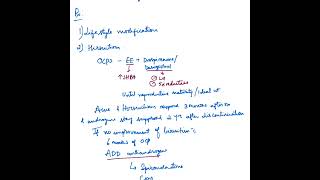 Rx
1) Lifestyle modification
2) Hirsutism
OCPs - EE + Drospirenone/
Desogestrel
↑SHBG ⊖ LH
⊖ 5α reductase
Until reproductive maturity/ Ideal wt
Acne & Hirsutism respond 3 months after
& androgens stay suppressed 2 yr after discontinuation
If no improvement of hirsutism
6 months of OCP
ADD antiandrogen
↳ Spironolactone